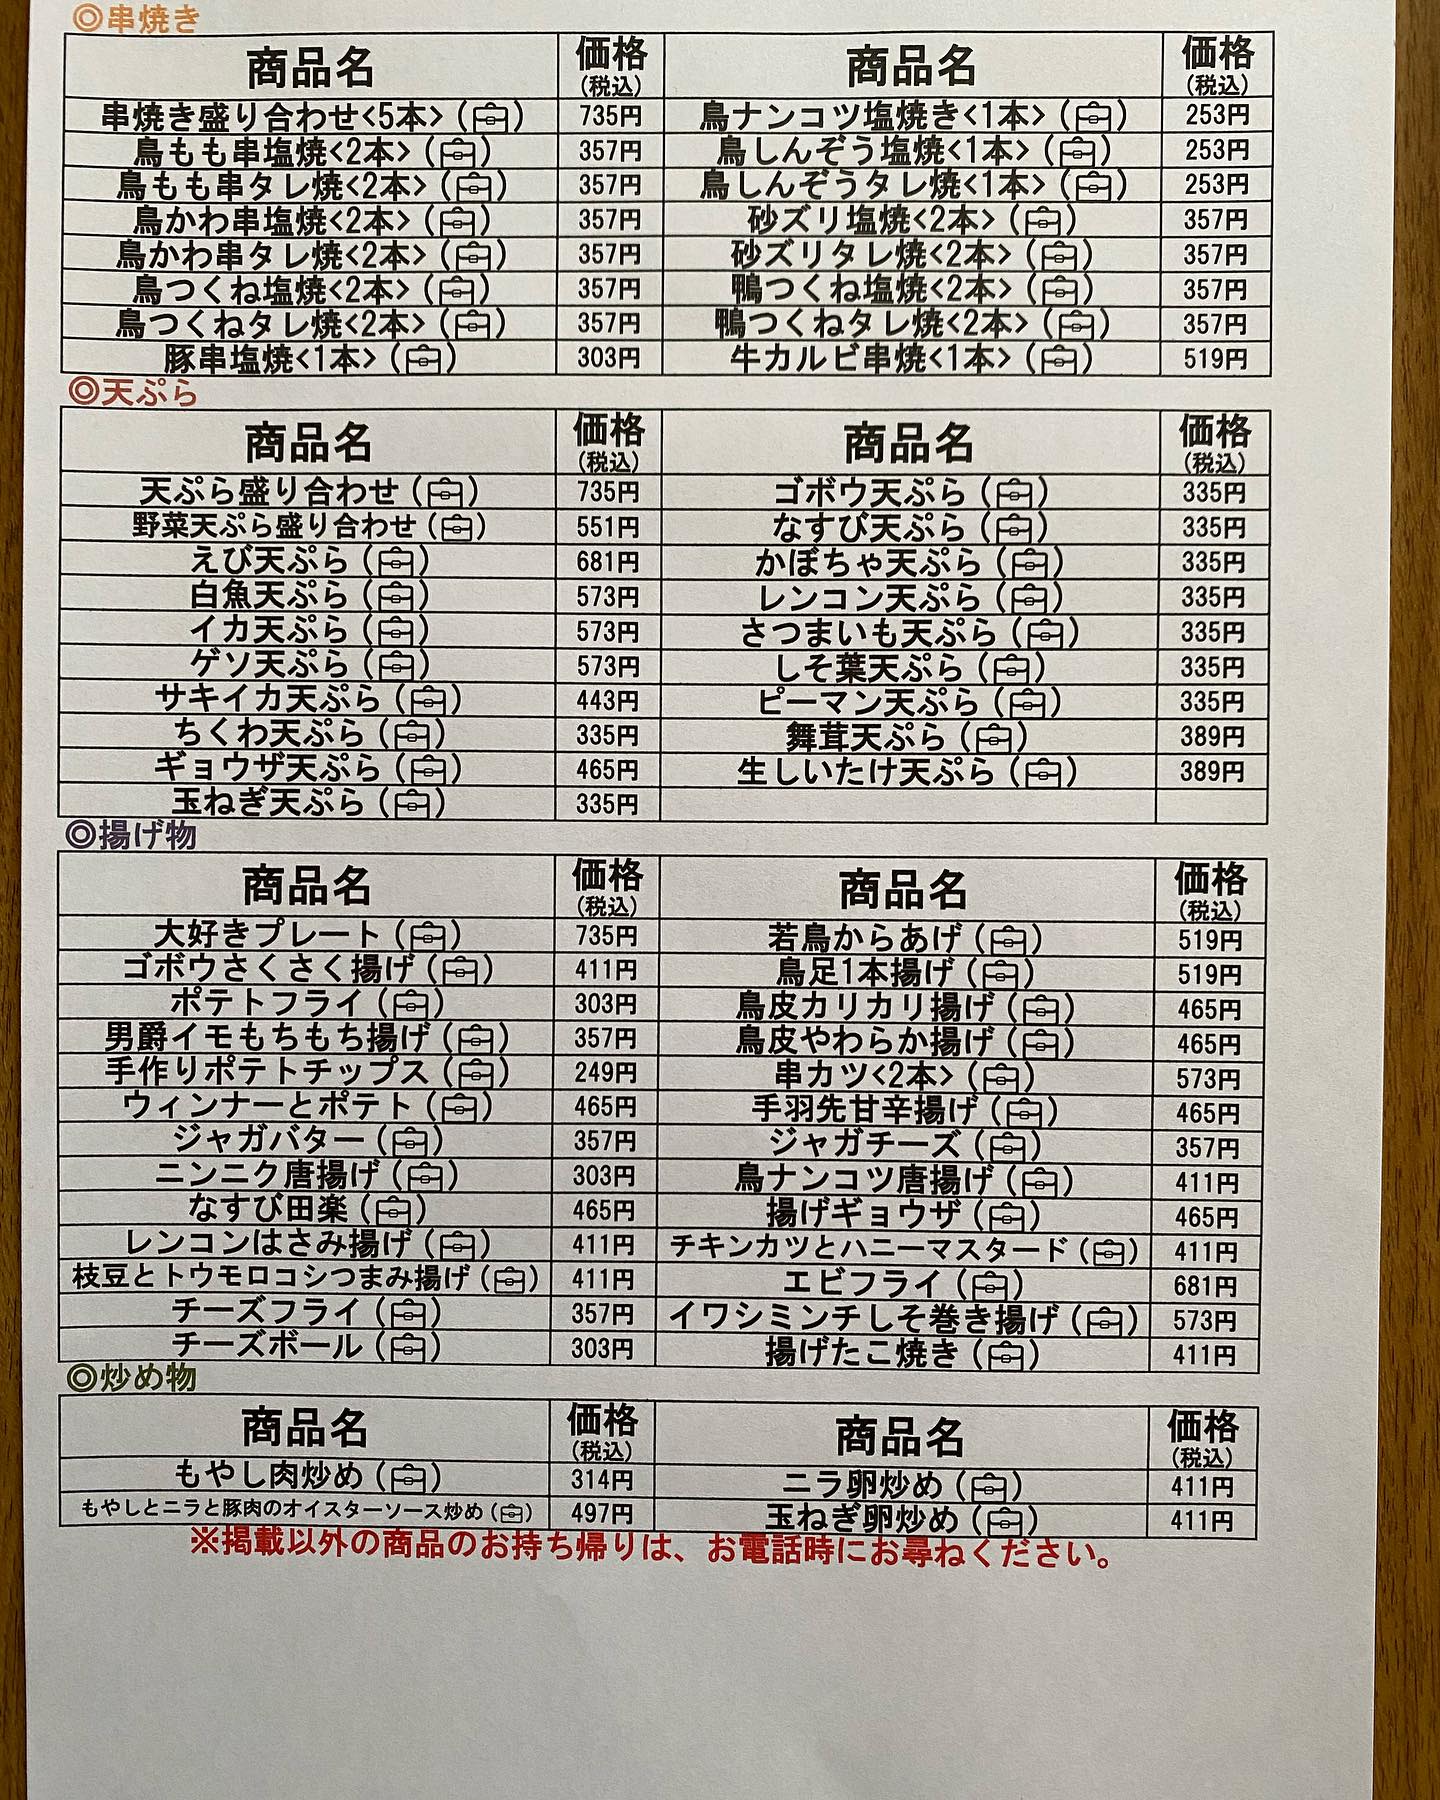 ◎串焼き
商品名 価格(税込) 商品名 価格(税込)
串焼き盛り合わせ<5本>() 735円 鳥ナンコツ塩焼き<1本>() 253円
鳥もも串塩焼<2本>() 357円 鳥しんぞう塩焼<1本>() 253円
鳥もも串タレ焼<2本>() 357円 鳥しんぞうタレ焼<1本>() 253円
鳥かわ串塩焼<2本>() 357円 砂ズリ塩焼<2本>() 357円
鳥かわ串タレ焼<2本>() 357円 砂ズリタレ焼<2本>() 357円
鳥つくね塩焼<2本>() 357円 鴨つくね塩焼<2本>() 357円
鳥つくねタレ焼<2本>() 357円 鴨つくねタレ焼<2本>() 357円
豚串塩焼<1本>() 303円 牛カルビ串焼<1本>() 519円
◎天ぷら
商品名 価格(税込) 商品名 価格(税込)
天ぷら盛り合わせ() 735円 ゴボウ天ぷら() 335円
野菜天ぷら盛り合わせ() 551円 なすび天ぷら() 335円
えび天ぷら() 681円 かぼちゃ天ぷら() 335円
白魚天ぷら() 573円 レンコン天ぷら() 335円
イカ天ぷら() 573円 さつまいも天ぷら() 335円
ゲソ天ぷら() 573円 しそ葉天ぷら() 335円
サキイカ天ぷら() 443円 ピーマン天ぷら() 335円
ちくわ天ぷら() 335円 舞茸天ぷら() 389円
ギョウザ天ぷら() 465円 生しいたけ天ぷら() 389円
玉ねぎ天ぷら() 335円
◎揚げ物
商品名 価格(税込) 商品名 価格(税込)
大好きプレート() 735円 若鳥からあげ() 519円
ゴボウさくさく揚げ() 411円 鳥足1本揚げ() 519円
ポテトフライ() 303円 鳥皮カリカリ揚げ() 465円
男爵イモもちもち揚げ() 357円 鳥皮やわらか揚げ() 465円
手作りポテトチップス() 249円 串カツ<2本>() 573円
ウィンナーとポテト() 465円 手羽先甘辛揚げ() 465円
ジャガバター() 357円 ジャガチーズ() 357円
ニンニク唐揚げ() 303円 鳥ナンコツ唐揚げ() 411円
なすび田楽() 465円 揚げギョウザ() 465円
レンコンはさみ揚げ() 411円 チキンカツとハニーマスタード() 411円
枝豆とトウモロコシつまみ揚げ() 411円 エビフライ() 681円
チーズフライ() 357円 イワシミンチしそ巻き揚げ() 573円
チーズボール() 303円 揚げたこ焼き() 411円
◎炒め物
商品名 価格(税込) 商品名 価格(税込)
もやし肉炒め() 314円 ニラ卵炒め() 411円
もやしとニラと豚肉のオイスターソース炒め() 497円 玉ねぎ卵炒め() 411円
※掲載以外の商品のお持ち帰りは、お電話時にお尋ねください。